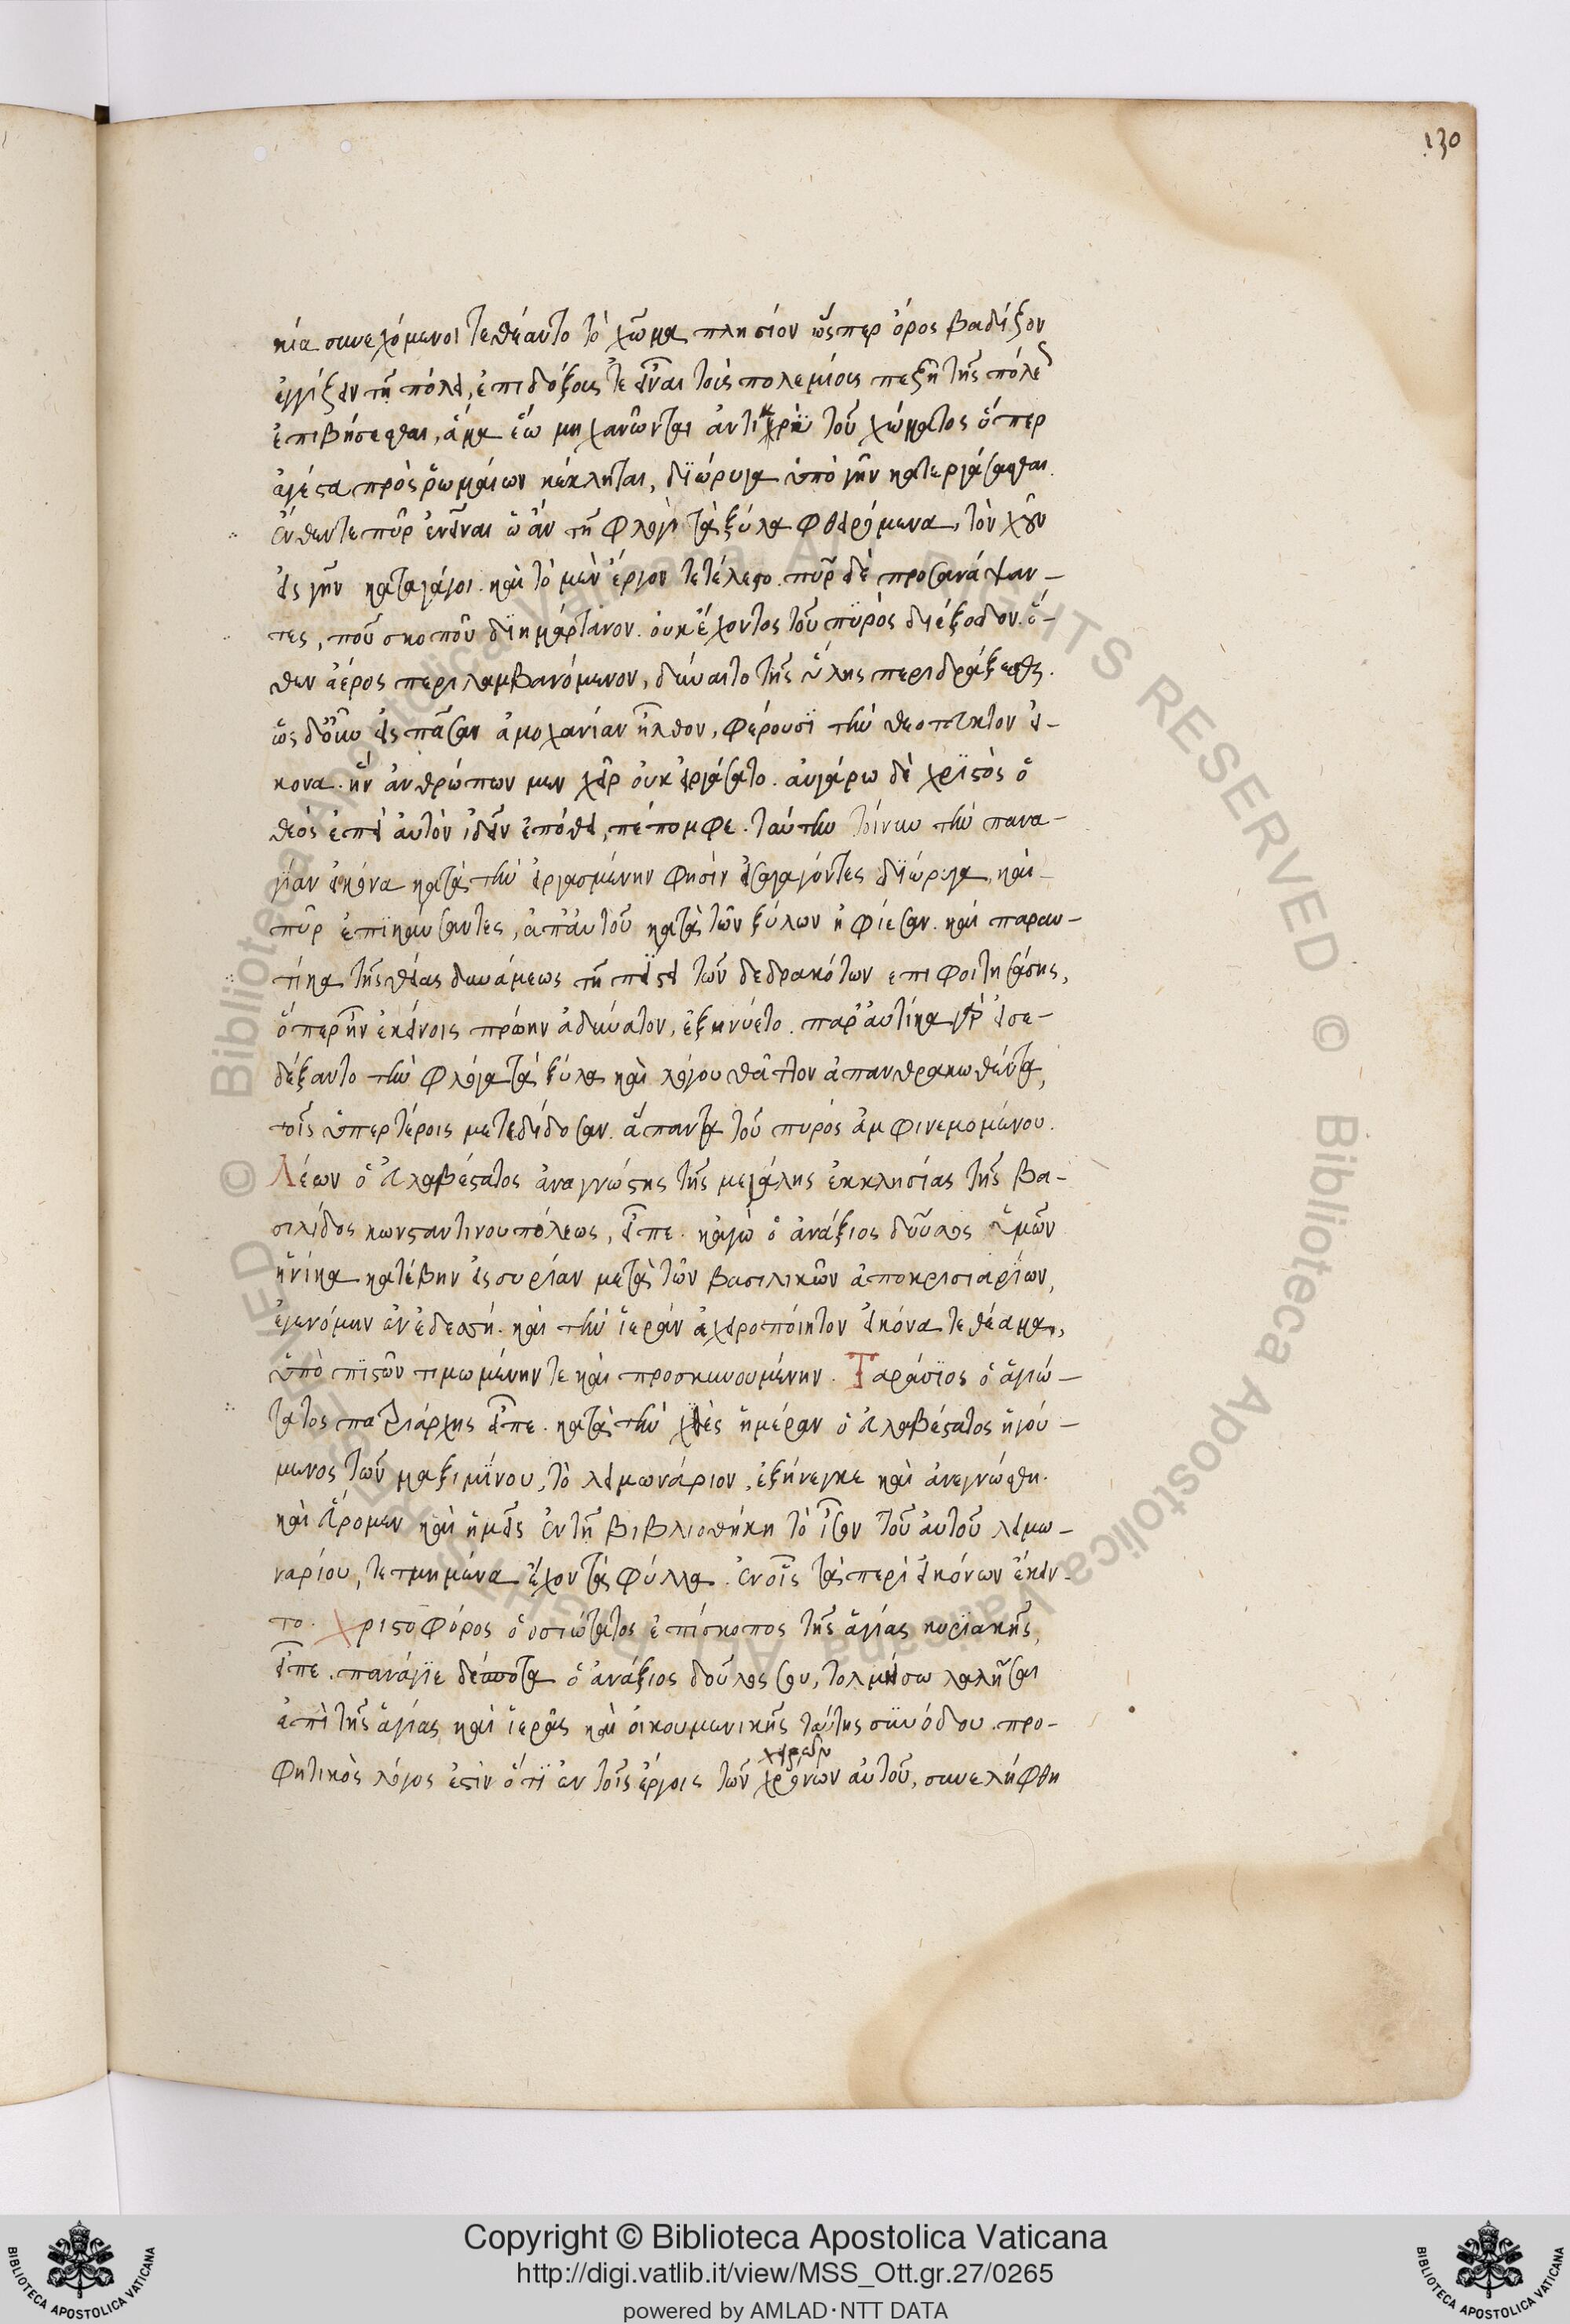 130
κία συνεχόμενοι τεθέαντο τὸ χῶμα πλησίον ὥσπερ ὄρος βαδίζον
ἐγγίζειν τῇ πόλει, ἐπιδόξους τε εἶναι τοὺς πολεμίους πεζῇ τῆς πόλεως
ἐπιβήσεσθαι, ἅμα ἕω μηχανῶνται ἀντικρὺ τοῦ χώματος ὅπερ
ἀγέστα πρὸς ῥωμαίων κέκληται, διώρυγα ὑπὸ γῆν κατεργάσασθαι.
ἔνθεν τε πῦρ ἐνεῖναι ὡ ἂν τῇ φλογὶ τὰ ξύλα φθειρόμενα, τὸν χοῦν
εἰς γῆν καταγάγοι. καὶ τὸ μὲν ἔργον τετέλεστο. πῦρ δὲ προσανάψαν-
τες, ποῦ σκοποῦ διημάρτανον. οὐκ ἔχοντος τοῦ πυρὸς διέξοδον. ὅ-
θεν ἀέρος περιλαμβανόμενον, δύναιτο τῆς ὕλης περιδράξεσθαι.
ὡς δ' οὖν εἰς πᾶσαν ἀμοχανίαν ἦλθον, φέρουσι τὴν θεότευκτον εἰ-
κονα. ἣν ἀνθρώπων μεν χεῖρ οὐκ εἰργάσατο. αὐγάρω δὲ χριστὸς ὁ
θεὸς ἐπεὶ αὐτὸν ἰδεῖν ἐπόθει, πέπομφε. ταύτην τοίνυν τὴν πανα-
γίαν εἰκόνα κατὰ τὴν εἰργασμένην φησὶν εἰσαγαγόντες διώρυγα, καὶ
πῦρ ἐπικαύσαντες, ἀπ' αὐτοῦ κατὰ τῶν ξύλων ἠφίεσαν. καὶ παραυ-
τίκα τῆς θείας δυνάμεως τῇ πίστει τῶν δεδρακότων επιφοιτησάσης,
ὅπερ ἦν ἐκείνοις πρώην ἀδύνατον, ἐξηνύετο. παρ' αὐτίκα γὰρ εἰσε-
δέξαντο τὴν φλόγα τὰ ξύλα καὶ λόγου θᾶττον ἀπανθρακωθέντα,
τοῖς ὑπερτέροις μετεδίδοσαν. ἅπαντα τοῦ πυρὸς ἀμφινεμομένου.
Λέων ὁ ἐλαβέστατος ἀναγνώστης τῆς μεγάλης ἐκκλησίας τῆς βα-
σιλίδος κωνσταντινουπόλεως, εἶπε. κἀγὼ ὁ ἀνάξιος δοῦλος ὑμῶν
ἡνίκα κατέβην εἰς συρίαν μετὰ τῶν βασιλικῶν ἀποκρισιαρίων,
ἐγενόμην ἐν ἐδεσῆ. καὶ τὴν ἱερὰν ἀχειροποίητον εἰκόνα τεθέαμαι,
ὑπὸ πιστῶν τιμωμένην τε καὶ προσκυνουμένην. Ταράσιος ὁ ἁγιώ-
τατος πατριάρχης εἶπε. κατὰ τὴν χθὲς ἡμέραν ὁ ἐλαβέστατος ἡγού-
μενος τῶν μαξιμίνου, τὸ λειμωνάριον, ἐξήνεγκε καὶ ἀνεγνώσθη.
καὶ εὕρομεν καὶ ἡμεῖς ἐν τῇ βιβλιοθήκη τὸ ἶσον τοῦ αὐτοῦ λειμω-
ναρίου, τετμημένα ἔχον τὰ φύλλα. ἐν οἷς τὰ περὶ εἰκόνων ἔκειν-
το. Χριστοφόρος ὁ ὁσιώτατος ἐπίσκοπος τῆς ἁγίας κυριακῆς,
εἶπε. πανάγιε δέσποτα ὁ ἀνάξιος δοῦλος σου, τολμήσω λαλῆσαι
ἐπὶ τῆς ἁγίας καὶ ἱερᾶς καὶ οἰκουμενικῆς ταύτης συνόδου. προ-
χειρῶν
φητικὸς λόγος ἐστὶν ὅτι ἐν τοῖς ἔργοις τῶν χρόνων αὐτοῦ, συνελήφθη
Copyright © Biblioteca Apostolica Vaticana
http://digi.vatlib.it/view/MSS_Ott.gr.27/0265
powered by AMLAD·NTT DATA